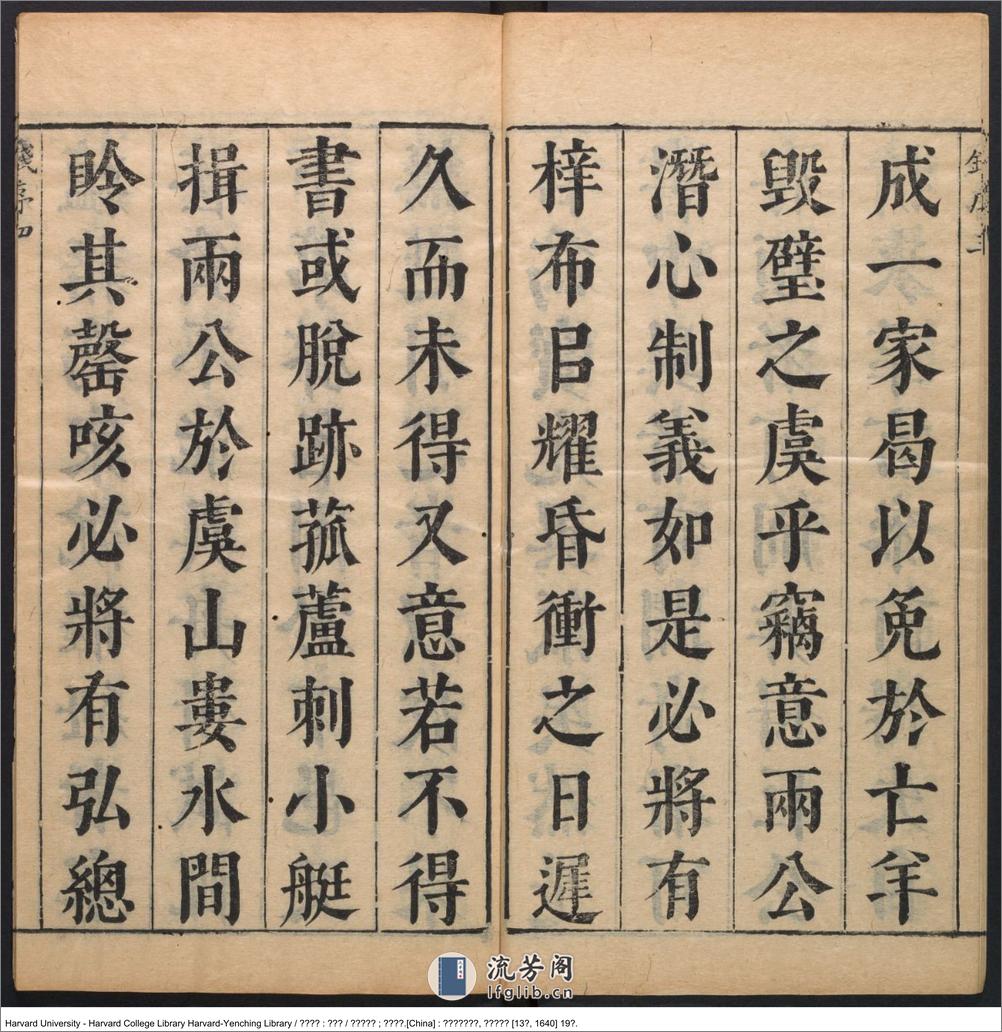 成一家曷以免於亡羊
毀璧之虞乎竊意兩公
潛心制義如是必將有
梓布㠯耀昏衝之日遲
久而未得又意若不得
書或脫跡菰蘆刺小艇
揖兩公於虞山婁水間
聆其罄咳必將有弘總
錢序四
流芳阁
lfglib.cn
Harvard University - Harvard College Library Harvard-Yenching Library / ???? : ??? / ????? ; ????.[China] : ???????, ????? [13?, 1640] 19?.